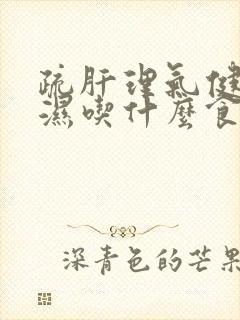 疏肝理气健
濕喫什麼食
深青色的芒果